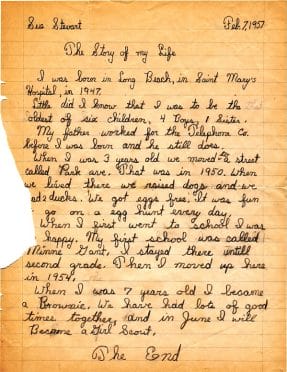 Sue Stewart Feb. 7, 1957
The Story of my Life
I was born in Long Beach, in Saint Mary's
Hospital, in 1947.
Little did I know that I was to be the
oldest of six children, 4 Boys, 1 Sister.
My father worked for the Telephone Co.
before I was born and he still does.
When I was 3 years old we moved to a street
called Park ave. That was in 1950. When
we lived there we raised dogs and we
had 2 ducks. We got eggs free. It was fun
go on a egg hunt every day.
When I first went to school I was
happy. My first school was called
Minnie Gant. I stayed there until
second grade. Then I moved up here
in 1954.
When I was 7 years old I became
a Brownie. We have had lots of good
times together, and in June I will
Become a Girl Scout.
The End